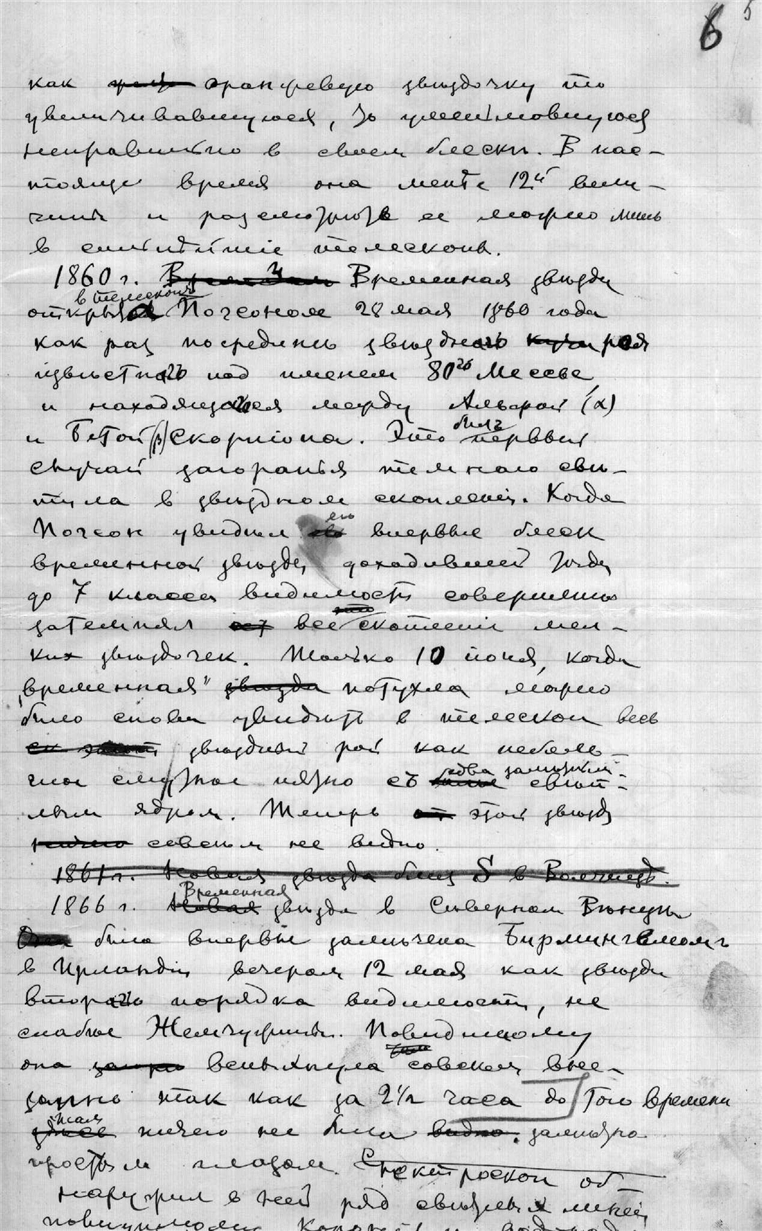 6 5
как оранжевую звѣздочку то
увеличивавшуюся, то уменьшавшуюся
неправильно в своем блескѣ. В нас-
тоящее время она менѣе 12й вели-
чины и разсмотрѣть ее можно лишь
в сильнѣйшіе телескопы.
1860 г. Временная звѣзда
в телескопъ
открыта Погсоном 28 мая 1860 года
как раз посрединѣ звѣзднаго роя
извѣстнаго под именем 80го Мессье
и находящагося между Альфой (α)
и Бетой (β) Скорпіона. Это был первый
случай загоранья темнаго свѣ-
тила в звѣздном скопленіи. Когда
Погсон увидѣл его впервые блеск
временной звѣзды, доходившей тогда
до 7 класса видимости совершенно
затемнял все скопленіе мел-
ких звѣздочек. Только 10 іюня, когда
"временная" потухла можно
было снова увидѣть в телескоп весь
звѣздный рой как неболь-
шое смутное пятно съ едва замѣтным свѣт-
лым ядром. Теперь этой звѣзды
совсѣм не видно.
1861 г. Новая звѣзда близ S в
Временная
1866 г. звѣзда в Сѣверном Вѣнцѣ
была впервые замѣчена Бирмингемомъ
в Ирландіи вечером 12 мая как звѣзда
втораго порядка видимости, не
слабѣе Жемчужины. Повидимому
она вспыхнула совсѣм вне-
запно так как за 2½ часа до того времени
там ничего не было замѣтно
простым глазом. Спектроскоп об-
наружил в ней ряд свѣтлых линій